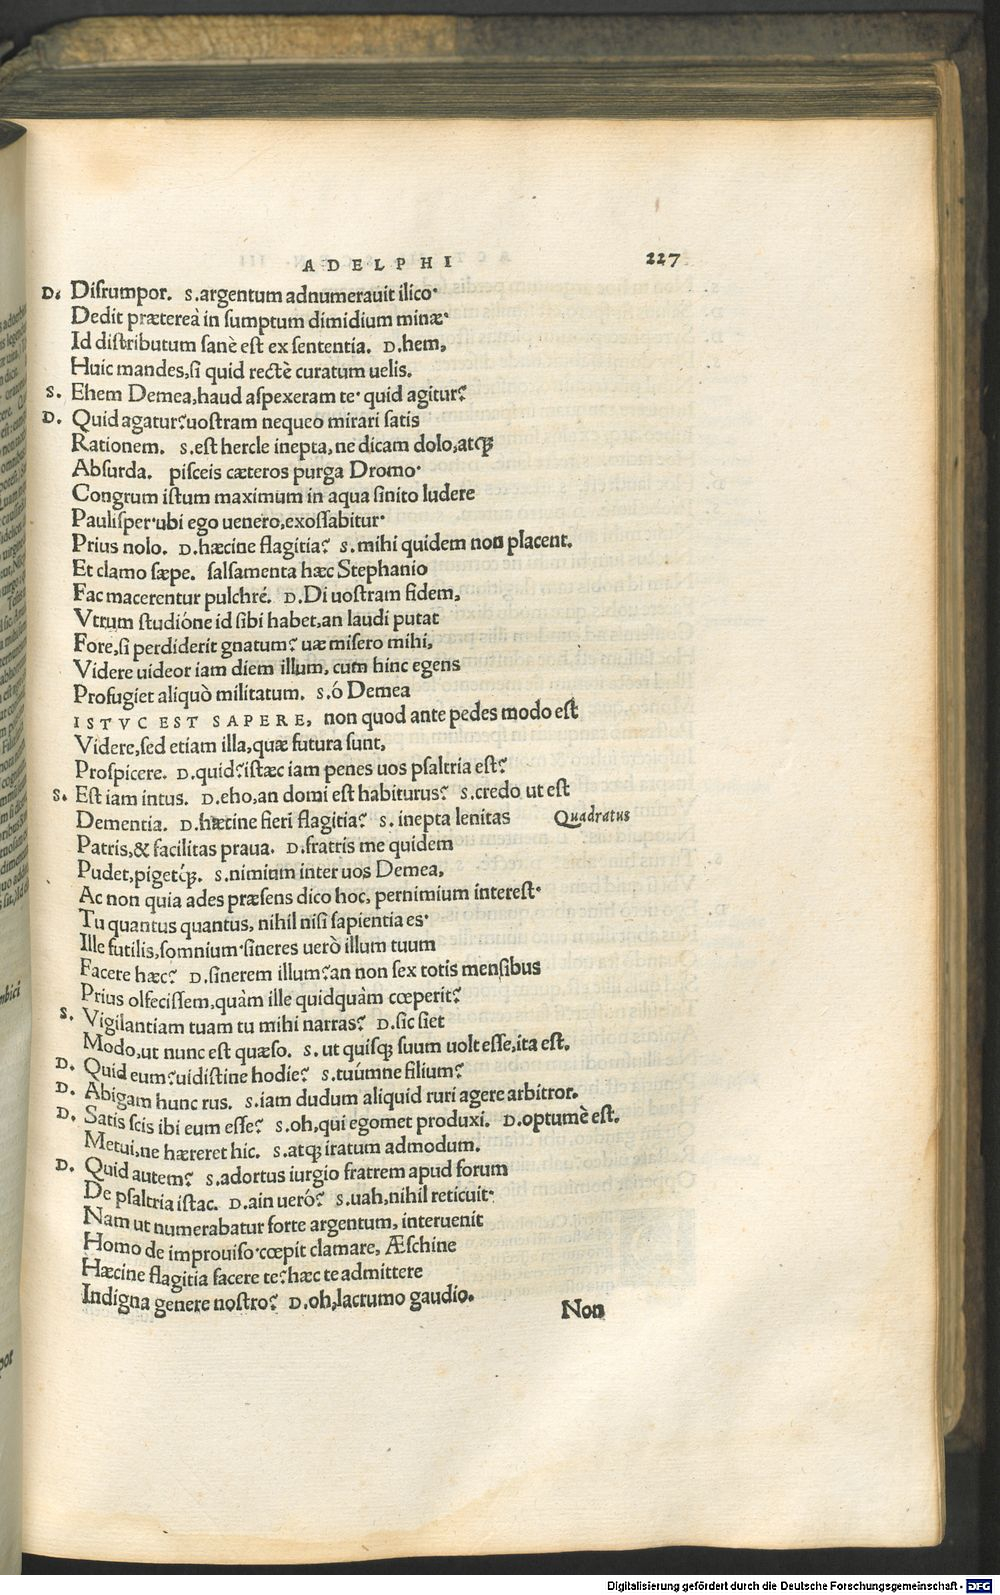 ADELPHI 227
D. Diſrumpor. S. argentum adnumerauit ilico·
Dedit prætereà in ſumptum dimidium minæ·
Id diſtributum ſanè eſt ex ſententia. D. hem,
Huic mandes, ſi quid rectè curatum uelis.
S. Ehem Demea, haud aſpexeram te· quid agitur?
D. Quid agatur? uoſtram nequeo mirari ſatis
Rationem. S. eſt hercle inepta, ne dicam dolo, atq;
Abſurda. piſceis cæteros purga Dromo·
Congrum iſtum maximum in aqua ſinito ludere
Pauliſper· ubi ego uenero, exoſſabitur·
Prius nolo. D. hæcine flagitia? S. mihi quidem non placent.
Et clamo ſæpe. ſalſamenta hæc Stephanio
Fac macerentur pulchré. D. Di uoſtram fidem,
Vtrum ſtudióne id ſibi habet, an laudi putat
Fore, ſi perdiderit gnatum? uæ miſero mihi,
Videre uideor iam diem illum, cum hinc egens
Profugiet aliquò militatum. S. ó Demea
ISTVC EST SAPERE, non quod ante pedes modo eſt
Videre, ſed etiam illa, quæ futura ſunt,
Proſpicere. D. quid? iſtæc iam penes uos pſaltria eſt?
S. Eſt iam intus. D. eho, an domi eſt habiturus? S. credo ut eſt
Dementia. D. hæcine fieri flagitia? S. inepta lenitas Quadratus
Patris, & facilitas praua. D. fratris me quidem
Pudet, pigetq;. S. nimium inter uos Demea,
Ac non quia ades præſens dico hoc, pernimium intereſt·
Tu quantus quantus, nihil niſi ſapientia es·
Ille futilis, ſomnium· ſineres uerò illum tuum
Facere hæc? D. ſinerem illum? an non ſex totis menſibus
Prius olfeciſſem, quàm ille quidquàm cœperit?
S. Vigilantiam tuam tu mihi narras? D. ſic ſiet
Modo, ut nunc eſt quæſo. S. ut quiſq; ſuum uolt eſſe, ita eſt.
D. Quid eum? uidiſtine hodie? S. tuúmne filium?
D. Abigam hunc rus. S. iam dudum aliquid ruri agere arbitror.
D. Satis ſcis ibi eum eſſe? S. oh, qui egomet produxi. D. optumè eſt.
Metui, ne hæreret hic. S. atq; iratum admodum.
D. Quid autem? S. adortus iurgio fratrem apud forum
De pſaltria iſtac. D. ain ueró? S. uah, nihil reticuit·
Nam ut numerabatur forte argentum, interuenit
Homo de improuiſo· cœpit clamare, Æſchine
Hæcine flagitia facere te? hæc te admittere
Indigna genere noſtro? D. oh, lacrumo gaudio.
Non
Digitalisierung gefördert durch die Deutsche Forschungsgemeinschaft - DFG